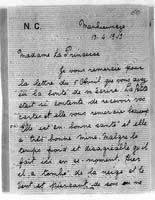 N.C.
12.4.1943
Madame La Princesse
Je vous remercie pour
la lettre du 5 Avril que vous avez
eu la bonté de m'écrire. La petite
était si contente de recevoir vos
cartes et elle vous remercie beaucoup
Elle est en bonne santé et elle
a très bonne mine, malgré le
temps froid et désagréable qu'il
fait ici en ce moment. Hier
il a tombé de la neige et le
vent est perçant de son on ne